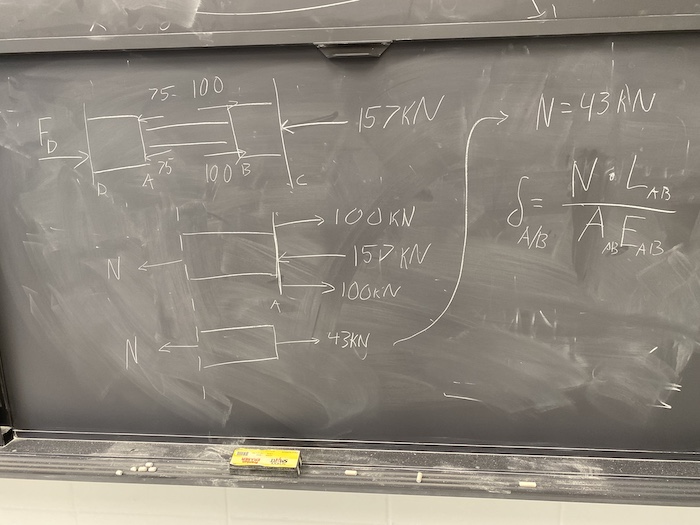 75 100
F_D 157KN
75 100
D A B C
100KN
N 157KN
100KN
A
N 43KN
N = 43 KN
δ_A/B = N · L_AB / A_AB E_AB